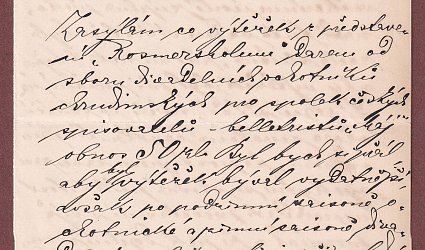 Zasýlám co výtěžek z představe-
ní „Rosmersholmu“ darem od
sboru divadelních ochotníků
chrudimských pro spolek českých
spisovatelů - belletristů „Máj“
obnos 50 zl. Byl bych si přál
aby byl výtěžek býval vydatnější
avšak po podzimní saisoně o-
chotnické a zimní saisoně diva-